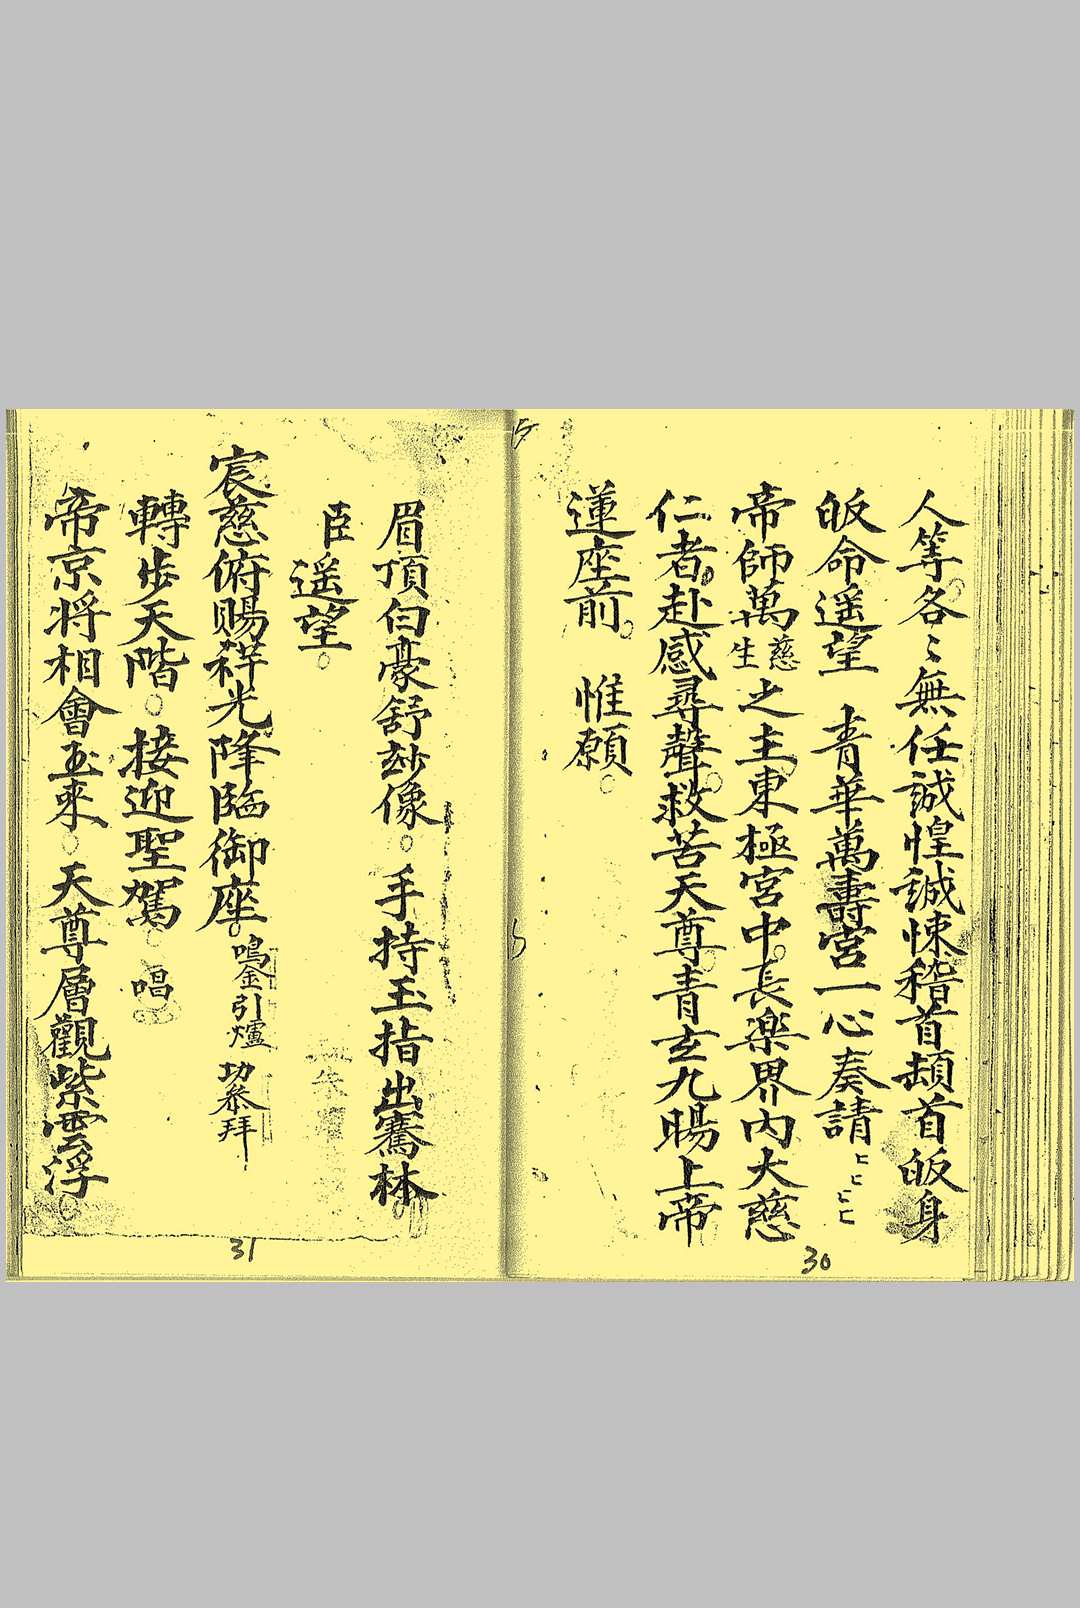 人等各〻無任誠惶誠悚稽首頓首皈身
皈命遥望　青華萬壽宮一心奏請
帝師萬慈生之主東極宮中長楽界內大慈
仁者赴感尋聲救苦天尊青玄九陽上帝
蓮座前　惟願
30
眉頂白豪舒玅像　手持玉指出騫林
臣遥望
宸慈俯賜祥光降臨御座　鳴金引爐　功叅拜
轉步天階　接迎聖駕　唱
帝京将相會五來　天尊層觀紫雲浮
31